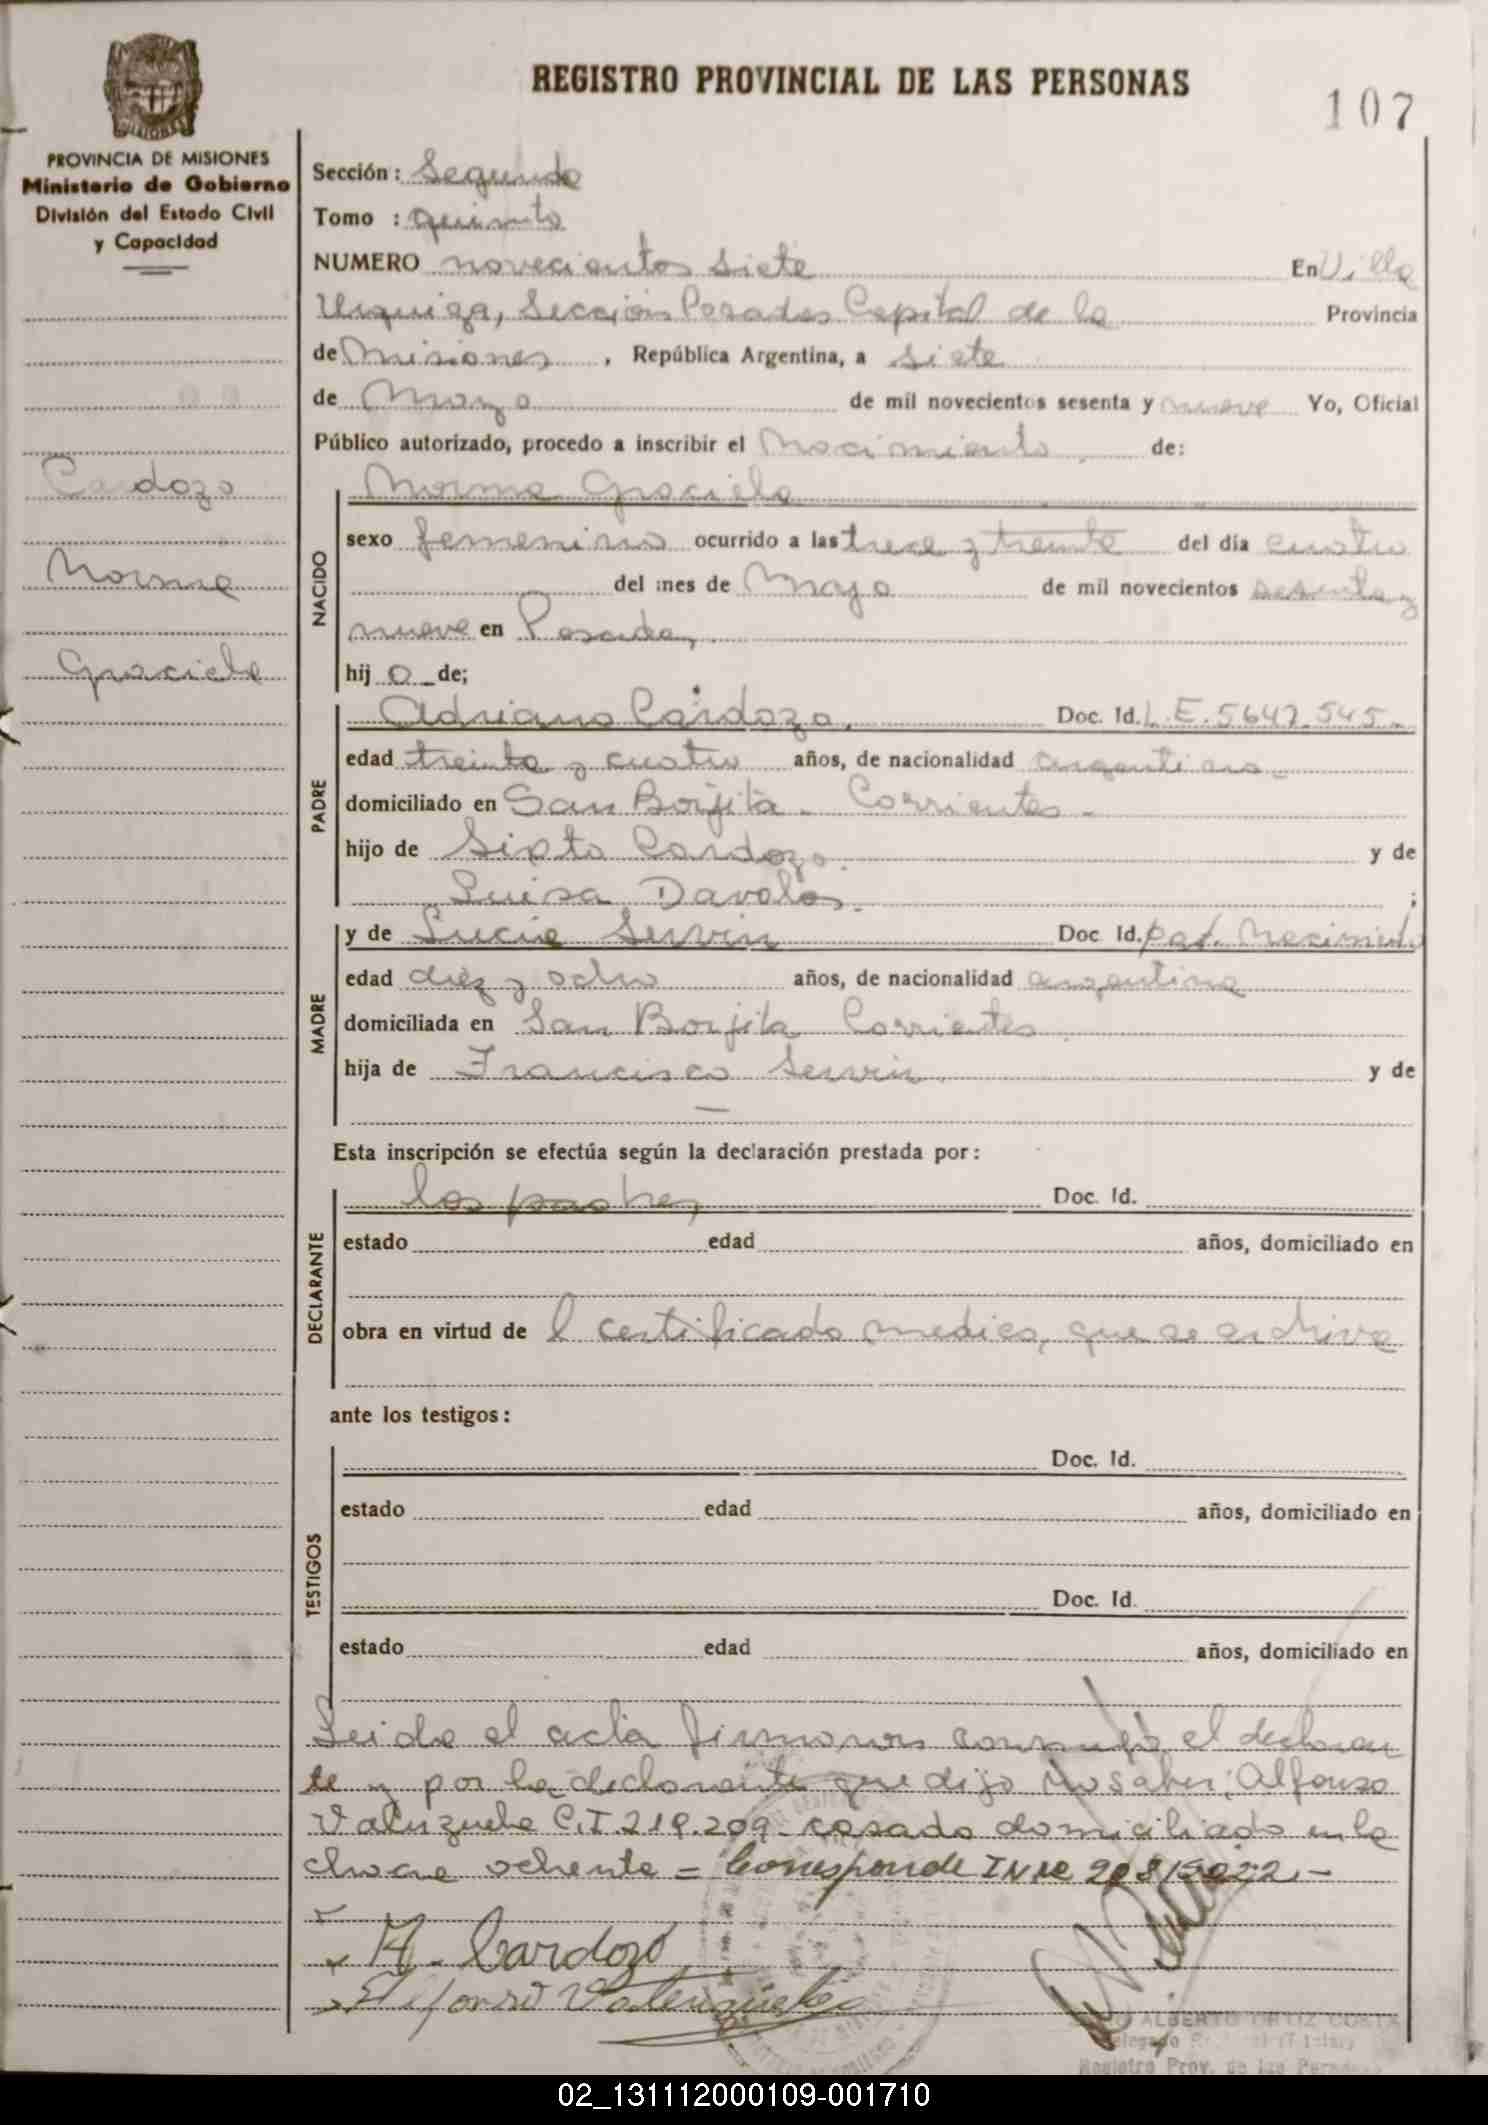 REGISTRO PROVINCIAL DE LAS PERSONAS
107
PROVINCIA DE MISIONES
Ministerio de Gobierno
División del Estado Civil
y Capacidad
Cardozo
Norma
Graciela
Sección: Segunda
Tomo : quinto
NUMERO novecientos siete En Villa
Urquiza, Sección Posadas Capital de la Provincia
de Misiones, República Argentina, a siete
de Mayo de mil novecientos sesenta y nueve Yo, Oficial
Público autorizado, procedo a inscribir el Nacimiento de:
NACIDO
Norma Graciela
sexo femenino ocurrido a las trece y treinta del día cuatro
del mes de Mayo de mil novecientos sesenta y
nueve en Posadas,
hij a de;
PADRE
Adriano Cardozo. Doc. Id. L.E. 5647.545.-
edad treinta y cuatro años, de nacionalidad argentino-
domiciliado en San Borjita - Corrientes -
hijo de Sixto Cardozo. y de
Luisa Davalos. ;
MADRE
y de Lucia Servin Doc. Id. part. Nacimiento
edad diez y ocho años, de nacionalidad argentina
domiciliada en San Borjita Corrientes
hija de Francisco Servin. y de
—
Esta inscripción se efectúa según la declaración prestada por:
DECLARANTE
los padres Doc. Id.
estado edad años, domiciliado en
obra en virtud de l certificado medico, que se archiva
ante los testigos:
TESTIGOS
Doc. Id.
estado edad años, domiciliado en
Doc. Id.
estado edad años, domiciliado en
Leida el acta firmanos conmigo el declaran
te y por la declarante que dijo no saber; Alfonso
Valenzuela C.I. 219.209- casado domiciliado en la
chacra ochenta = Corresponde INM 20815022.-
A. Cardozo
Elifonso Valenzuela
ALBERTO ORTIZ COSTA
Registro Prov. de las Personas
02_131112000109-001710